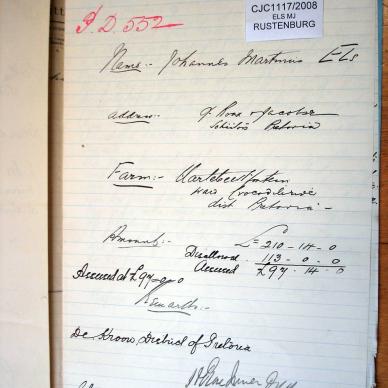 CJC1117/2008
ELS MJ
RUSTENBURG
P.D. 552
Name:- Johannes Martinus Els
Address:- c/ Roux & Jacobsz
Pretoria
Farm:- Hartebeestfontein
Ward Crocodile
dist Pretoria -
Amount:- £210-14-0
Disallowed 113-0-0
Assessed £97-14-0
Assessed at £97-0-0
Remarks:-
De Kroon, District of Pretoria